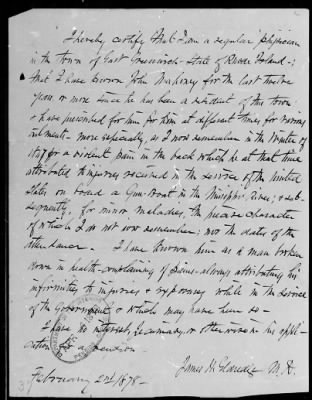 I hereby certify that I am a regular physician
in the town of East Greenwich - State of Rhode Island -;
that I have known John Mahoney for the last twelve
years or more since he has been a resident of this town
& have prescribed for him at different times for various
ailments - more especially, as I now remember in the Winter of
for a violent pain in the back which he at that time
attributed to injuries received in the service of the United
States on board a Gun-boat in the Mississippi River; & sub-
sequently, for minor maladies, the precise character
of which I do not now remember; nor the dates of the
attendance - I have known him as a man broken
down in health - complaining of pains - always attributing his
infirmities to injuries & exposures while in the service
of the Government, & which may have been so -
I have no interest, pecuniary, or otherwise in his appli-
cation for a pension -
James H. Eldredge M.D.
February 2nd 1878 -